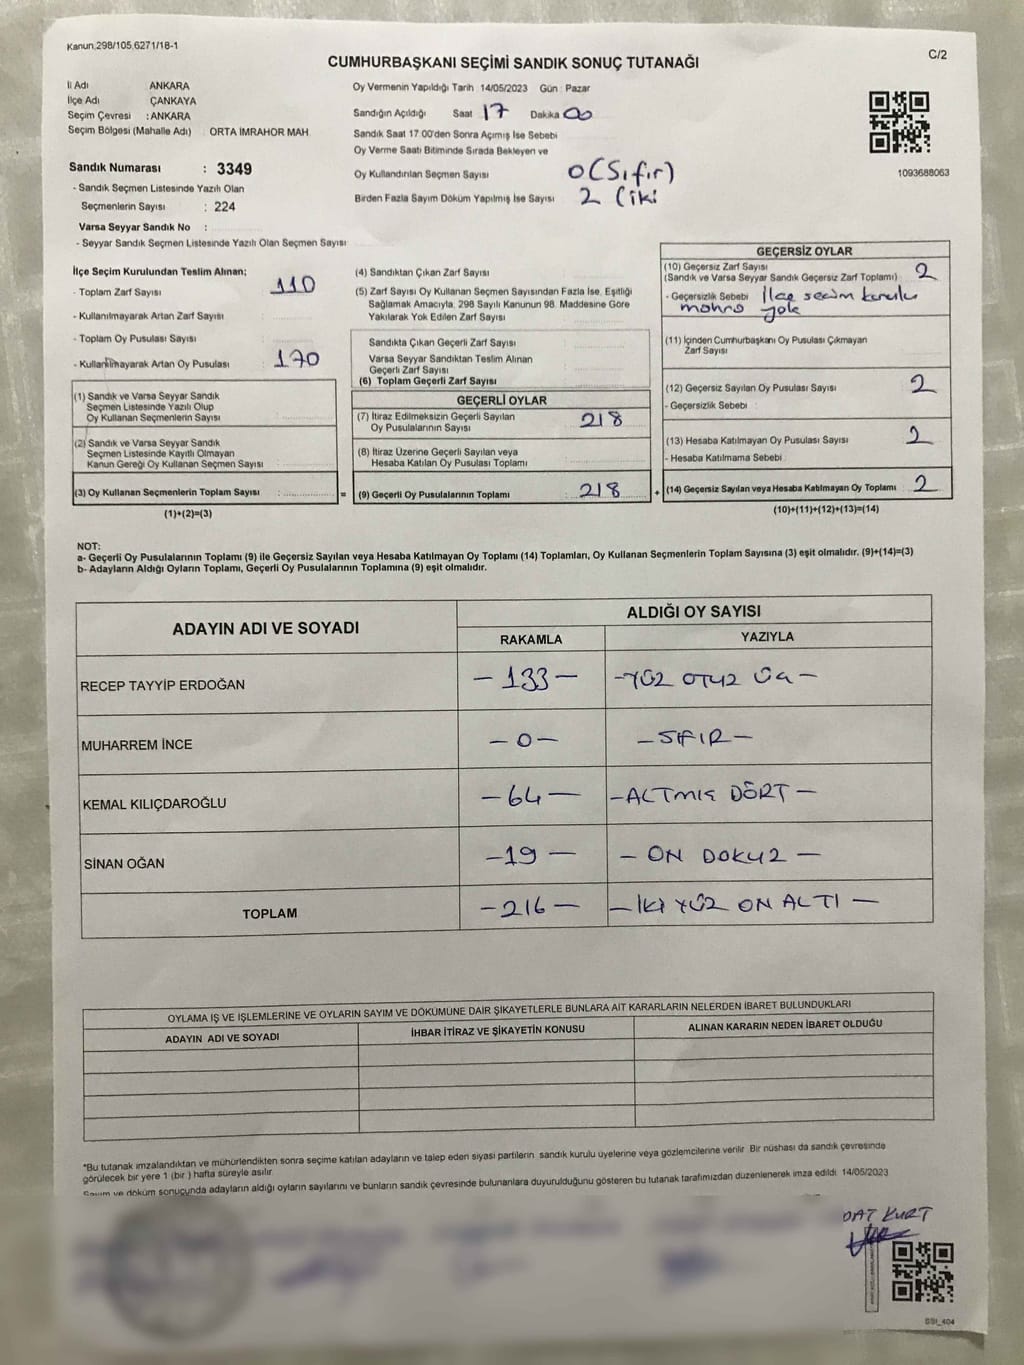 Kanun.298/105.6271/18-1
C/2
CUMHURBAŞKANI SEÇİMİ SANDIK SONUÇ TUTANAĞI
İl Adı ANKARA
İlçe Adı ÇANKAYA
Seçim Çevresi : ANKARA
Seçim Bölgesi (Mahalle Adı) : ORTA İMRAHOR MAH.
Sandık Numarası : 3349
- Sandık Seçmen Listesinde Yazılı Olan
Seçmenlerin Sayısı : 224
Varsa Seyyar Sandık No :
- Seyyar Sandık Seçmen Listesinde Yazılı Olan Seçmen Sayısı
Oy Vermenin Yapıldığı Tarih 14/05/2023 Gün : Pazar
Sandığın Açıldığı Saat 17 Dakika 00
Sandık Saat 17.00'den Sonra Açımış İse Sebebi
Oy Verme Saati Bitiminde Sırada Bekleyen ve
Oy Kullandırılan Seçmen Sayısı 0 (Sıfır)
Birden Fazla Sayım Döküm Yapılmış İse Sayısı 2 (iki
1093688063
İlçe Seçim Kurulundan Teslim Alınan;
- Toplam Zarf Sayısı : 110
- Kullanılmayarak Artan Zarf Sayısı :
- Toplam Oy Pusulası Sayısı :
- Kullanılmayarak Artan Oy Pusulası : 170
(1) Sandık ve Varsa Seyyar Sandık
Seçmen Listesinde Yazılı Olup
Oy Kullanan Seçmenlerin Sayısı :
(2) Sandık ve Varsa Seyyar Sandık
Seçmen Listesinde Kayıtlı Olmayan
Kanun Gereği Oy Kullanan Seçmen Sayısı :
(3) Oy Kullanan Seçmenlerin Toplam Sayısı : =
(1)+(2)=(3)
(4) Sandıktan Çıkan Zarf Sayısı
(5) Zarf Sayısı Oy Kullanan Seçmen Sayısından Fazla İse, Eşitliği
Sağlamak Amacıyla, 298 Sayılı Kanunun 98. Maddesine Göre
Yakılarak Yok Edilen Zarf Sayısı
Sandıkta Çıkan Geçerli Zarf Sayısı
Varsa Seyyar Sandıktan Teslim Alınan
Geçerli Zarf Sayısı
(6) Toplam Geçerli Zarf Sayısı
GEÇERLİ OYLAR
(7) İtiraz Edilmeksizin Geçerli Sayılan
Oy Pusulalarının Sayısı 218
(8) İtiraz Üzerine Geçerli Sayılan veya
Hesaba Katılan Oy Pusulası Toplamı
(9) Geçerli Oy Pusulalarının Toplamı 218 +
GEÇERSİZ OYLAR
(10) Geçersiz Zarf Sayısı
(Sandık ve Varsa Seyyar Sandık Geçersiz Zarf Toplamı) : 2
- Geçersizlik Sebebi : İlçe seçim kurulu
yok
(11) İçinden Cumhurbaşkanı Oy Pusulası Çıkmayan
Zarf Sayısı
(12) Geçersiz Sayılan Oy Pusulası Sayısı 2
- Geçersizlik Sebebi :
(13) Hesaba Katılmayan Oy Pusulası Sayısı 2
- Hesaba Katılmama Sebebi
(14) Geçersiz Sayılan veya Hesaba Katılmayan Oy Toplamı 2
(10)+(11)+(12)+(13)=(14)
NOT:
a- Geçerli Oy Pusulalarının Toplamı (9) ile Geçersiz Sayılan veya Hesaba Katılmayan Oy Toplamı (14) Toplamları, Oy Kullanan Seçmenlerin Toplam Sayısına (3) eşit olmalıdır. (9)+(14)=(3)
b- Adayların Aldığı Oyların Toplamı, Geçerli Oy Pusulalarının Toplamına (9) eşit olmalıdır.
ADAYIN ADI VE SOYADI
ALDIĞI OY SAYISI
RAKAMLA YAZIYLA
RECEP TAYYİP ERDOĞAN - 133 - - YÜZ OTUZ ÜÇ -
MUHARREM İNCE - 0 - - SIFIR -
KEMAL KILIÇDAROĞLU - 64 - - ALTMIŞ DÖRT -
SİNAN OĞAN - 19 - - ON DOKUZ -
TOPLAM - 216 - - İKİ YÜZ ON ALTI -
OYLAMA İŞ VE İŞLEMLERİNE VE OYLARIN SAYIM VE DÖKÜMÜNE DAİR ŞİKAYETLERLE BUNLARA AİT KARARLARIN NELERDEN İBARET BULUNDUKLARI
ADAYIN ADI VE SOYADI İHBAR İTİRAZ VE ŞİKAYETİN KONUSU ALINAN KARARIN NEDEN İBARET OLDUĞU
*Bu tutanak imzalandıktan ve mühürlendikten sonra seçime katılan adayların ve talep eden siyasi partilerin sandık kurulu üyelerine veya gözlemcilerine verilir. Bir nüshası da sandık çevresinde
görülecek bir yere 1 (bir ) hafta süreyle asılır.
Sayım ve döküm sonucunda adayların aldığı oyların sayılarını ve bunların sandık çevresinde bulunanlara duyurulduğunu gösteren bu tutanak tarafımızdan düzenlenerek imza edildi. 14/05/2023
KURT
SSI_404